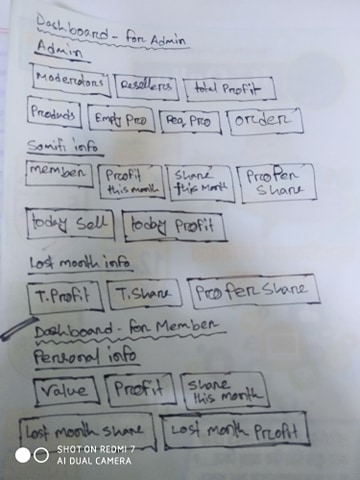 Dashboard - for Admin
Admin
Moderators Resellers total Profit
Products Empty Pro Req Pro order
Somiti info
member Profit this month Share this Month Pro Per Share
today Sell today Profit
Lost month info
T.Profit T.Share Pro Per Share
Dashboard - for Member
Personal info
Value Profit Share this month
Lost month Share Lost month Profit
SHOT ON REDMI 7
AI DUAL CAMERA